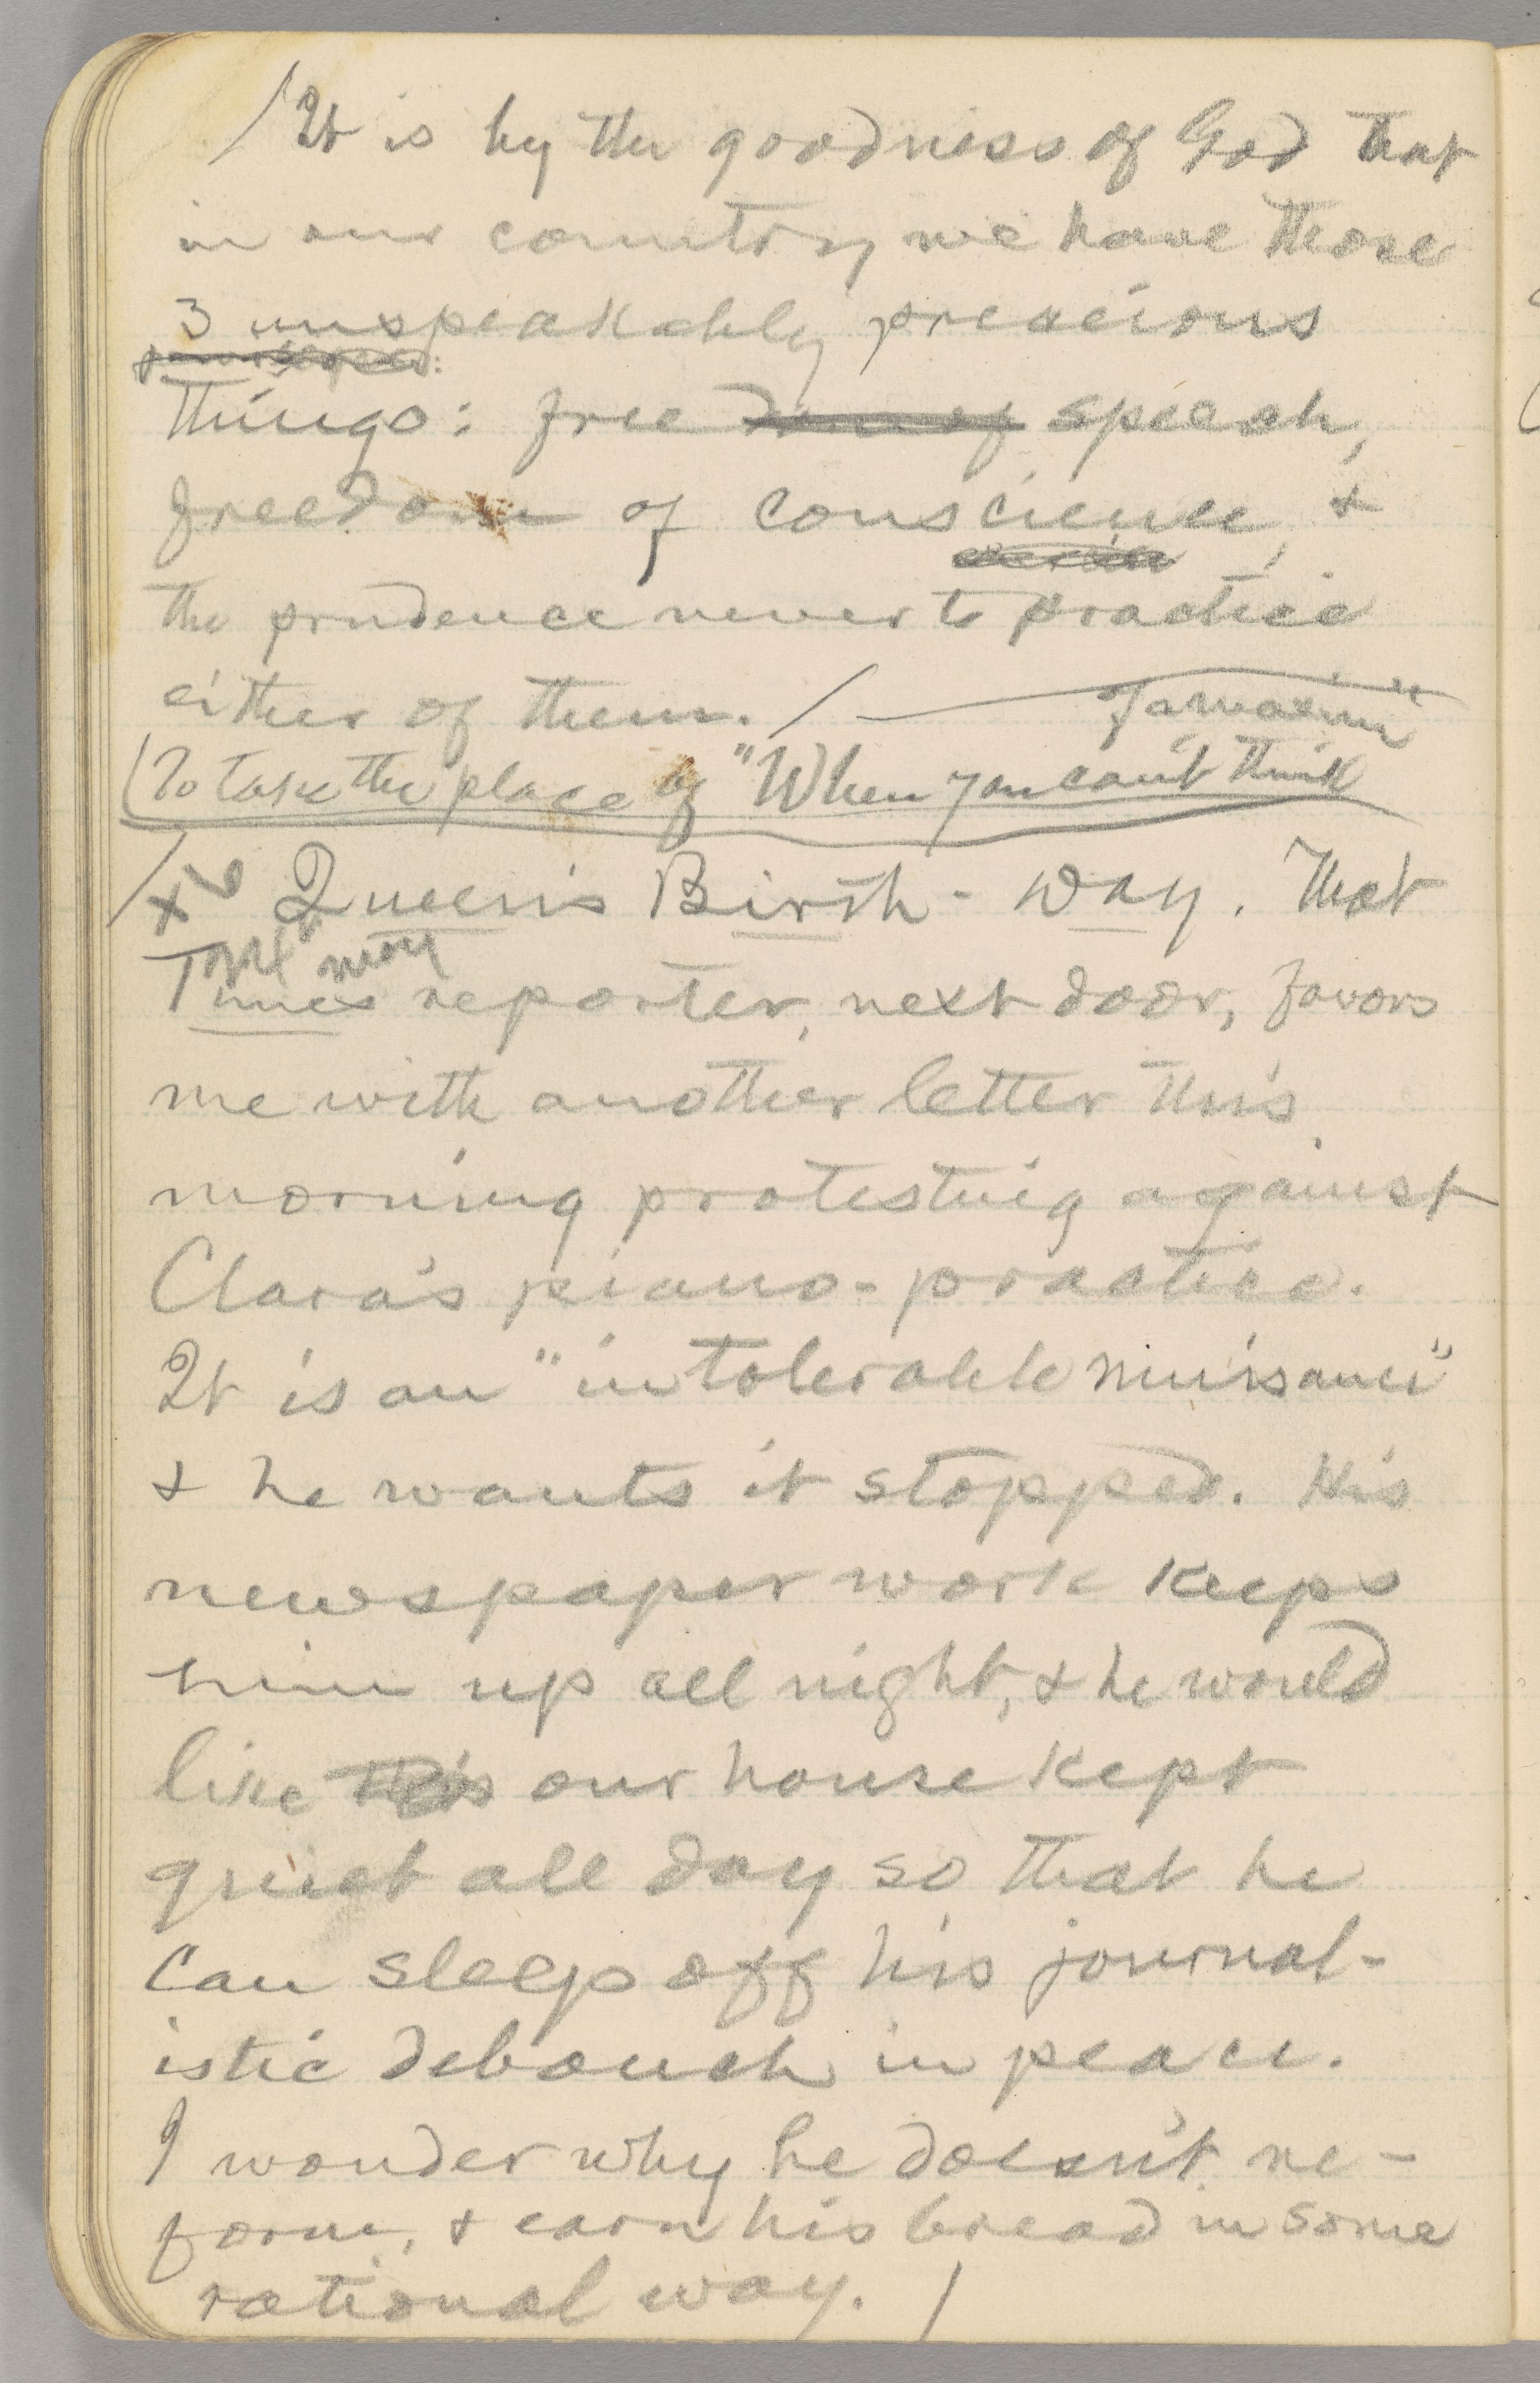 /It is by the goodness of God that
in our country we have those
3 unspeakably precious
things: free dom of speech,
freedom of conscience, &
the prudence never to practice
either of them. /
(To take the place of "When you can't think
/x Queen's Birth-day. That
Times reporter, next door, favors
me with another letter this
morning protesting against
Clara's piano-practice.
It is an "intolerable nuisance"
& he wants it stopped. His
newspaper work keeps
him up all night, & he would
like this our house kept
quiet all day so that he
can sleep off his journal-
istic debauch in peace.
I wonder why he doesn't re-
form, & earn his bread in some
rational way. /